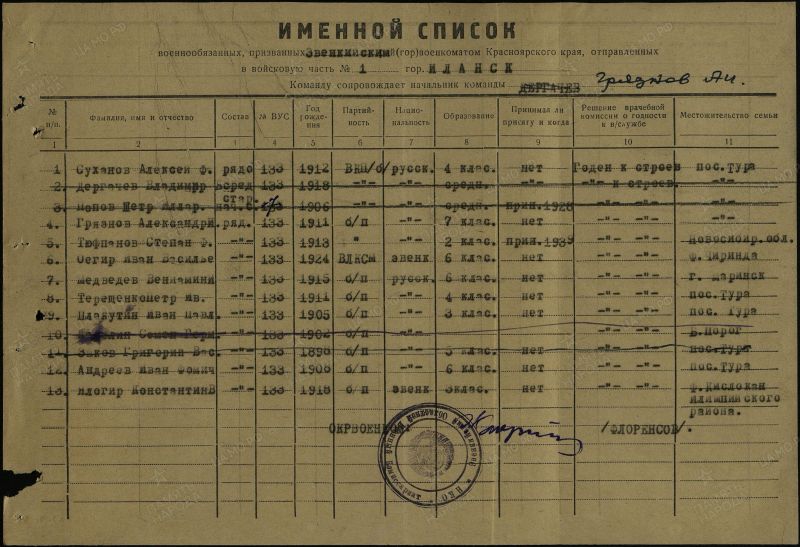 ИМЕННОЙ СПИСОК
военнообязанных, призванных Эвенкийским (гор)военкоматом Красноярского края, отправленных
в войсковую часть № 1 гор. ИЛАНСК
Команду сопровождает начальник команды ДЕРГАЧЕВ Грязнов Ан.
№ п/п. Фамилия, имя и отчество Состав № ВУС Год рождения Партийность Национальность Образование Принимал ли присягу и когда Решение врачебной комиссии о годности к в/службе Местожительство семьи
1 2 3 4 5 6 7 8 9 10 11
1 Суханов Алексей ф. рядо 133 1912 ВКП/б/ русск. 4 клас. нет Годен к строев пос.Тура
2. Дергачев Владимир серед 133 1918 -"- -"- средн. -"- -"- к строев. -"-
3 Попов Петр Иллар. нач.с. стар. 1906 -"- -"- средн. прин.1928 -"- -"- -"-
4. Грязнов Александри. ряд. 133 1911 б/п -"- 7 клас. нет -"- -"-
5. Тюфпанов Степан Ф. -"- 133 1913 " -"- 2 клас. прин.1939 -"- -"- Новосибир. обл.
6. Оегир Иван Василье -"- 133 1924 ВЛКСМ эвенк 6 клас. нет -"- -"- ф.Чиринда
7. Медведев Вениамини -"- 133 1915 б/п русск. 6 клас. нет -"- -"- г. Маринск
8. ТерещенкоПетр Ив. -"- 133 1911 б/п -"- 4 клас. нет -"- -"- пос.Тура
9. Плавутин Иван Павл. -"- 133 1905 б/п -"- 3 клас. нет -"- -"- пос. Тура
10. Семен -"- 133 1902 б/п -"- -"- Б.Порог
11. Зыков Григорий Вас. -"- 133 1898 б/п -"- 3 клас. нет -"- -"- пос.Тура
12. Андреев Иван Фомич -"- 133 1908 б/п -"- 6 клас. нет -"- -"- пос.Тура
13. Илогир КонстантинВ -"- 133 1918 б/п эвенк 3клас. нет -"- -"- ф.Кислокан
Илимпийского
района.
ОКРВОЕНКОМ /ФЛОРЕНСОВ/.